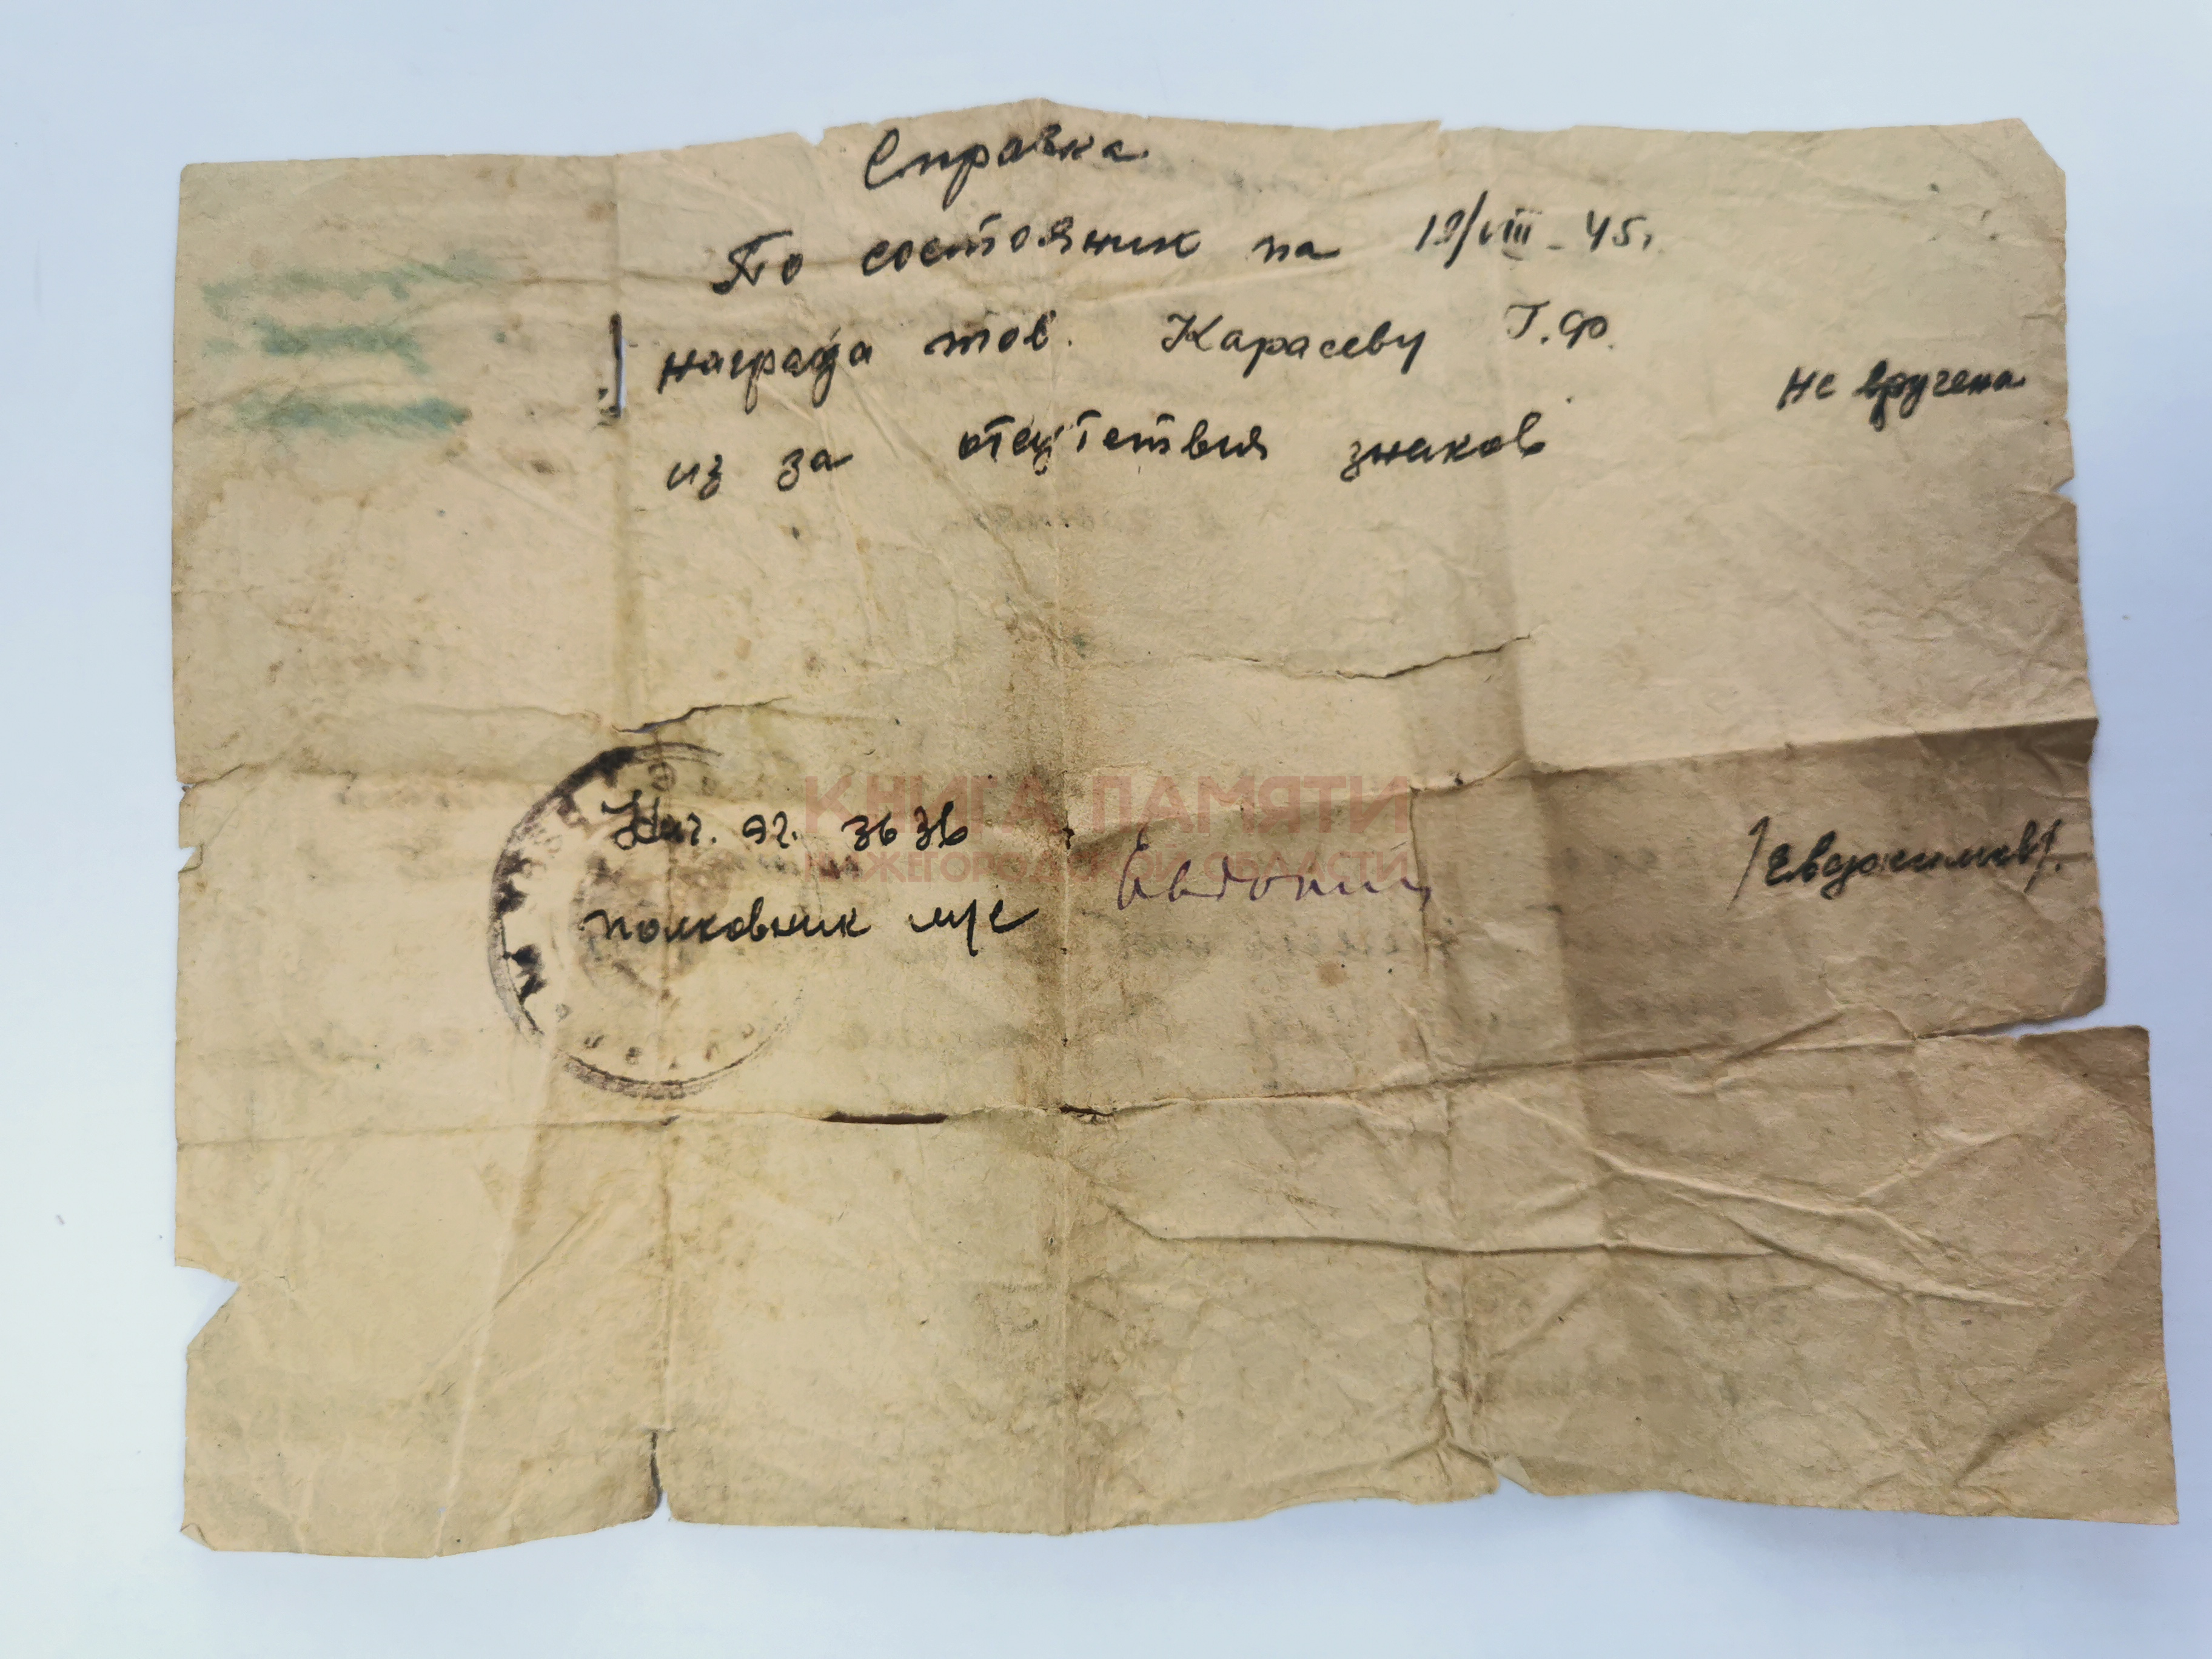 Справка
По состоянию на 19/VIII-45г.
награда тов. Карасеву Г.Ф. не вручена
из за отсутствия знаков
КНИГА ПАМЯТИ
НИЖЕГОРОДСКОЙ ОБЛАСТИ
Нач. эг. 3636
полковник м/с /Евдокимов/.